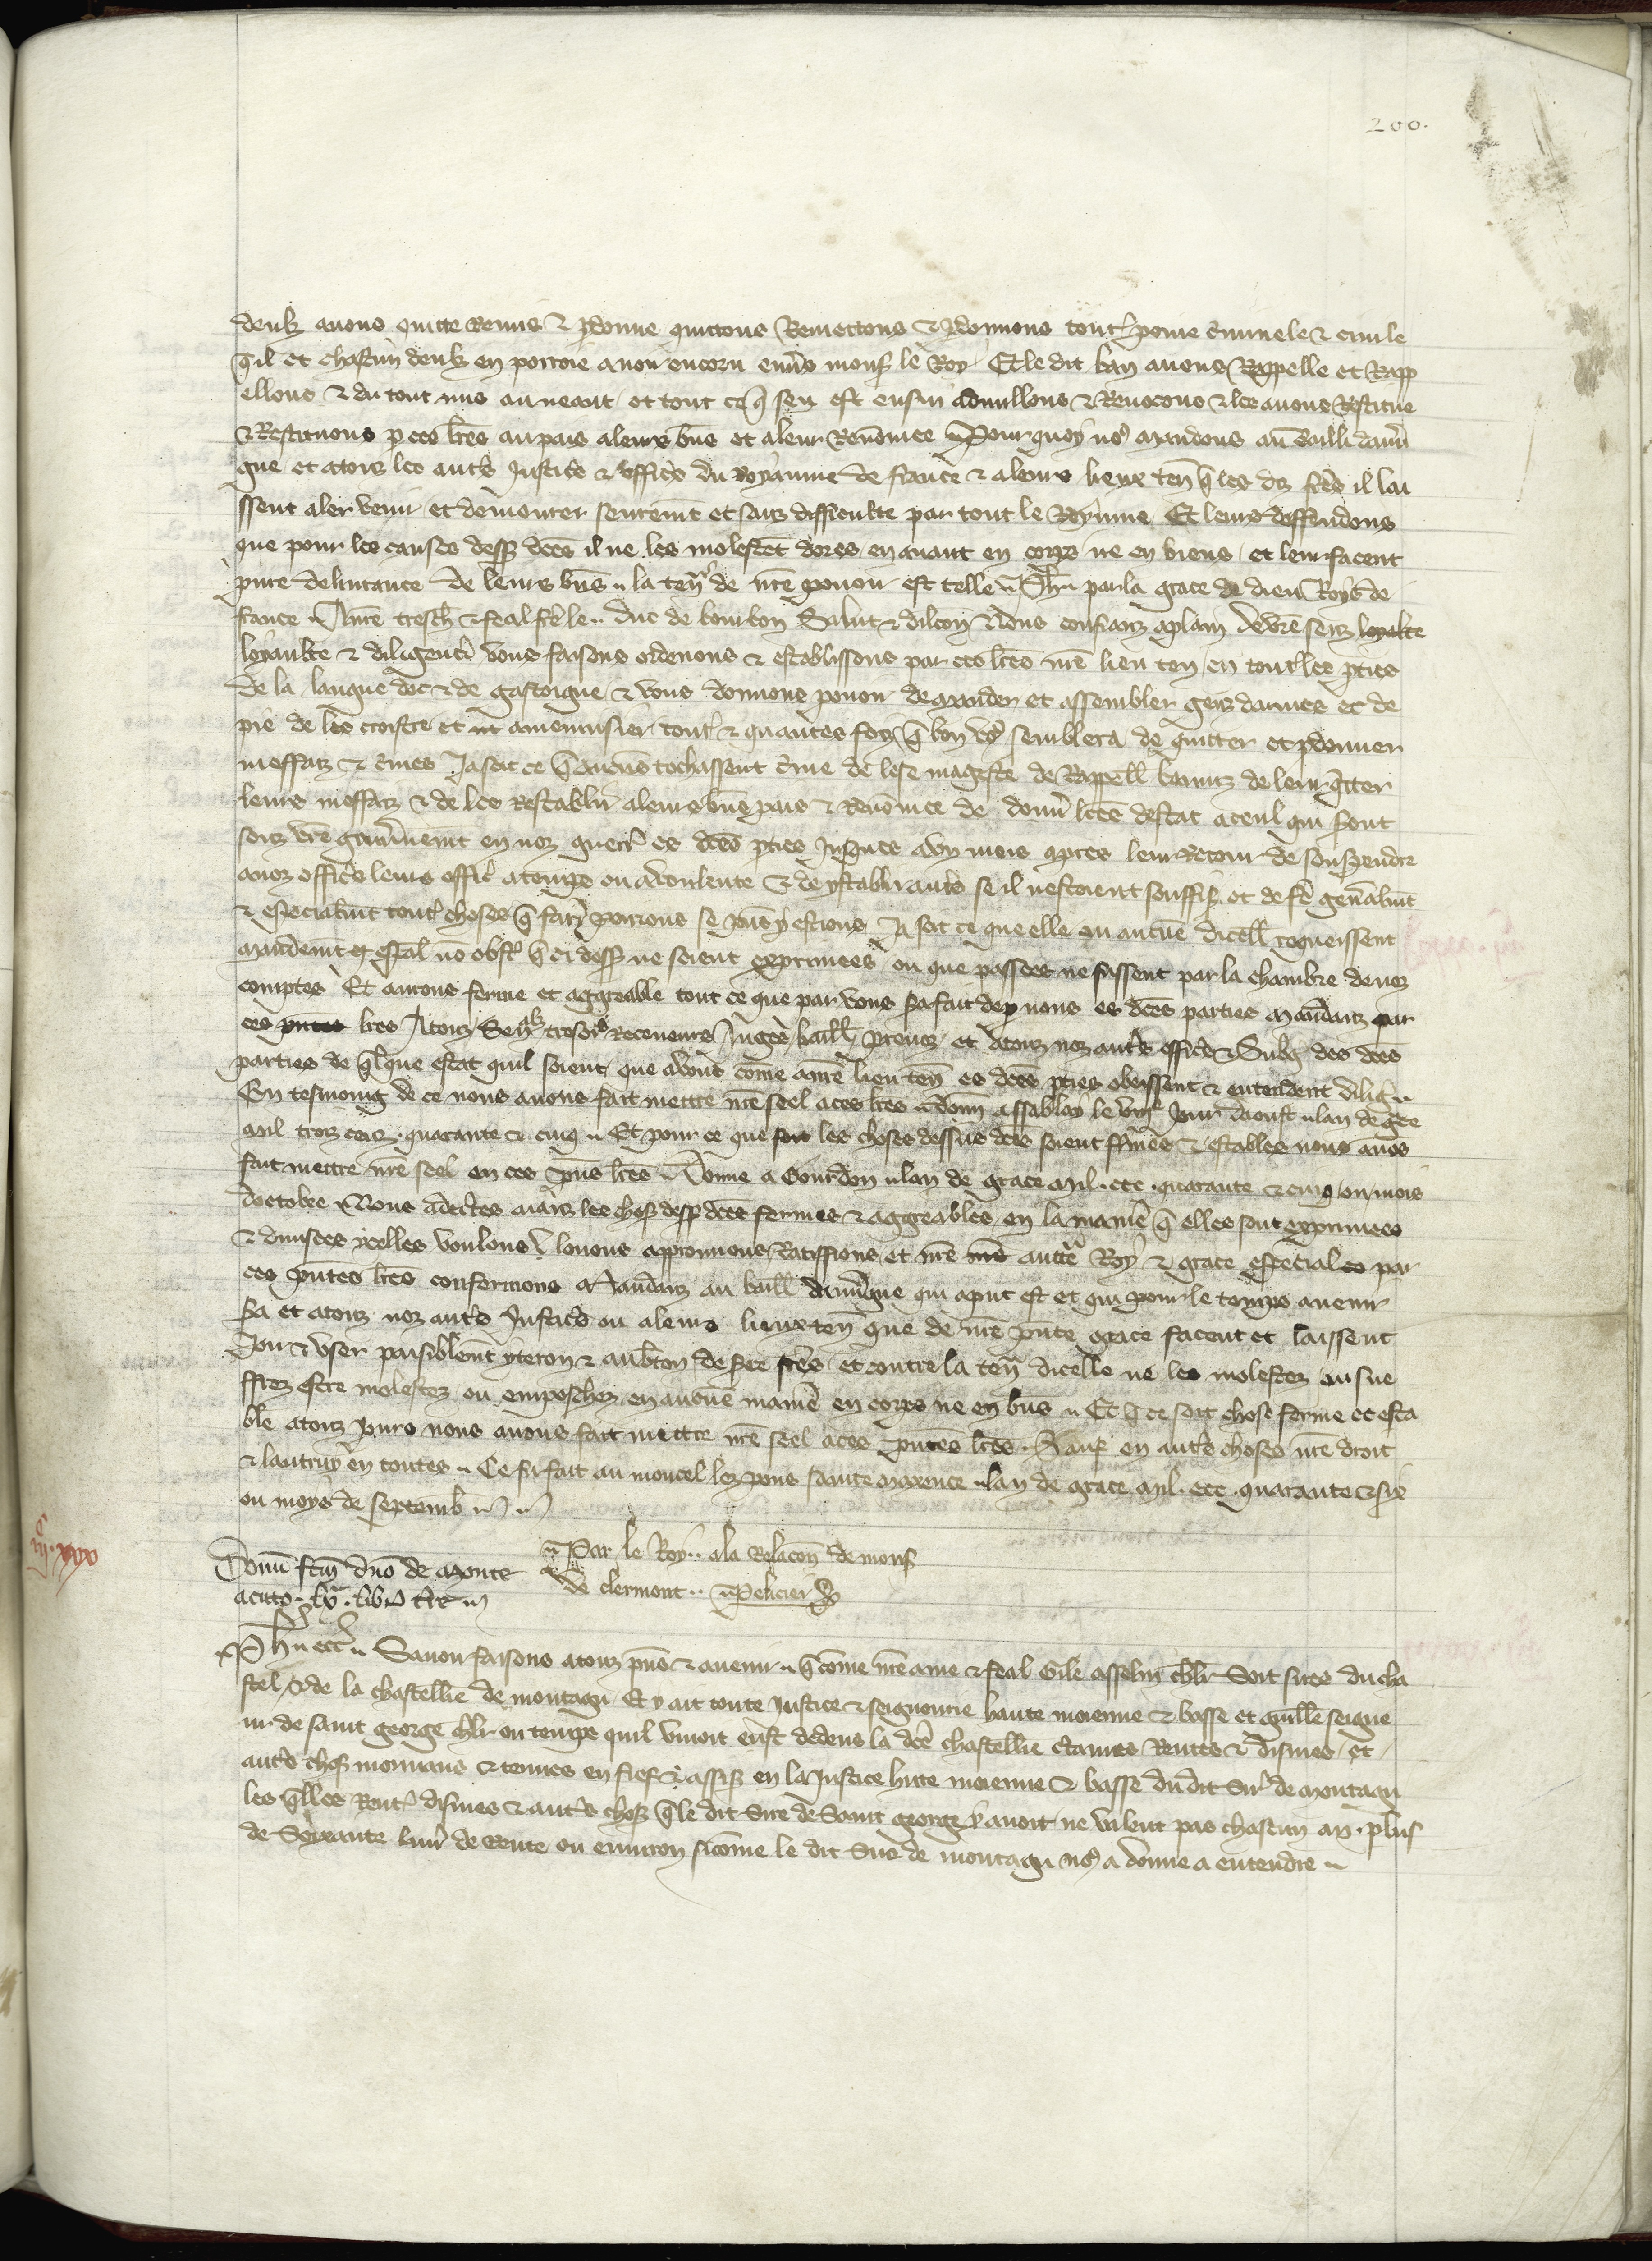 200.
deulz avons quitte remis & pdonne quittons Remettons & pdonnons toute peine criminele & civile
qil et chascun deulz en porroie avoir encoru envers mons le Roy Et le dit ban avons Rappelle et Rapp
ellons & du tout mis au neant et tout ce q sen est ensui adnullons & Revocons & les avons Restitue
& Restituons p ces lres au pais a leurs bns et a leur Renomee Pour quoy no9 mandons au bailli dauver
gne et a touz les autres Justices & officiers du royaume de france & a leurs lieux ten q les diz freres il lai
ssent aler venir et demourer seurement et sanz difficulte par tout le Royaume Et leur deffendons
que pour les causes dess dces il ne les molestent dores en avant en corps ne en biens et leur facent
pure delivrance de leurs bns la teneur de nre pouoir est telle Ph par la grace de dieu Roys de
france A nre tresch & feal frere le duc de bourbon Salut & dilcon Nous confianz a plain de vre senz loyalte
loyaulte & diligence vous faisons ordenons & establissons par ces lres nre lieu ten en toutes les pties
de la langue doc & de gascoigne & vous donnons pouoir de mander et assembler genz darmes et de
pie de les croistre et amenuisier toutes & quantes foiz q bon vo9 semblera de quitter et pdonner
meffaiz & crimes Ja soit ce q aucuns tochassent crime de lese mageste de Rappeller banniz de leur quitter
leurs meffaiz & de les restablir a leurs bns pais & Renomee de donner lres destat a ceulz qui sont
souz vre gouvernement en noz guerres es dces pties Jusques a un mois apres leur Retour de souspendre
a noz officiers leurs offices a temps ou a voulente & de y establir autres se il nestoient souffis et de fere generalment
& especialment toutes choses q faire porrions se pns y estions Ja soit ce que elle ou aucune dicelles requeissent
mandement especal no obst q ci dess ne soient exprimees ou que passees ne fussent par la chambre de noz
comptes Et aurons ferme et aggreable tout ce que par vous sa fait dep nous es dces parties Mandanz par
ces lres A touz Senz tresors Receveurs Juges baill prevoz et a touz noz autres officiers & Subg des dces
parties de qlque estat quil soient que a vous come a nre lieu ten es dces pties obeissent & entendent dilig
En tesmoing de ce nous avons fait mettre nre seel a ces lres donn a ssabloy le viije Jour daoust lan de gce
Mil trois cenz quarante & cinq Et pour ce que les choses dessus dces soient fermes & estables nous avons
fait mettre nre seel en ces pns lres Donne a Gourdon lan de grace Mil ccc quarante & cinq ou mois
doctobre Nous adecertes aianz les chos dess dces fermes & aggreables en la maniere q elles sont exprimees
& divisees ycelles voulons louons approuvons Ratiffions et de nre auctorite Royal & grace especial es par
ces pntes lres confermons Mandanz au baill dauvergne qui a pnt est et qui pour le temps avenir
sa et a touz noz autres Justiciers ou a leurs lieuxten que de nre pnte grace facent et laissent
Joir & user paisiblement yteron & aubton de ses freres et contre la ten dicelle ne les molestez ou sue
ffrez estre molestez ou empeschez en aucune maniere en corps ne en bns Et q ce soit chose ferme et esta
ble a touz Jours nous avons fait mettre nre seel a ces pntes lres Sauf en autres choses nre droit
& lautruy en toutes Ce fu fait au moncel lez pons sainte maxence lan de grace Mil ccc quarante & six
ou moys de septemb
Par le Roy a la Relacon de mons
de clermont Pelicier
Donu fcm dno de Monte
acuto lx libr tr
Ph etc Savoir faisons a touz pns & avenir q come nre ame & feal Gile asselin chlr Soit sires du cha
stel & de la chastellie de montagu Et y ait toute Justice & seigneurie haute moienne & basse et guille seigne
ur de saint george chlr ou temps quil vivoit eust dedens la dce chastellie Rentes & dismes et
autres chos mouvans & tenues en fief & assis en la Justice hute moienne & basse du dit Sire de Montagu
les qlles Rentes dismes & autres choses q le dit Sire de Saint george y avoit ne valent pas chascun an plus
de Soixante livres de Rente ou environ si come le dit Sire de montagu no9 a donne a entendre